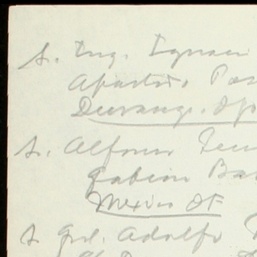 S. Ing. Ignaci
Apartado Pos
Durango. Dgo
S. Alfonso
Gabino Bar
Mexico DF
S Gral. Adolfo